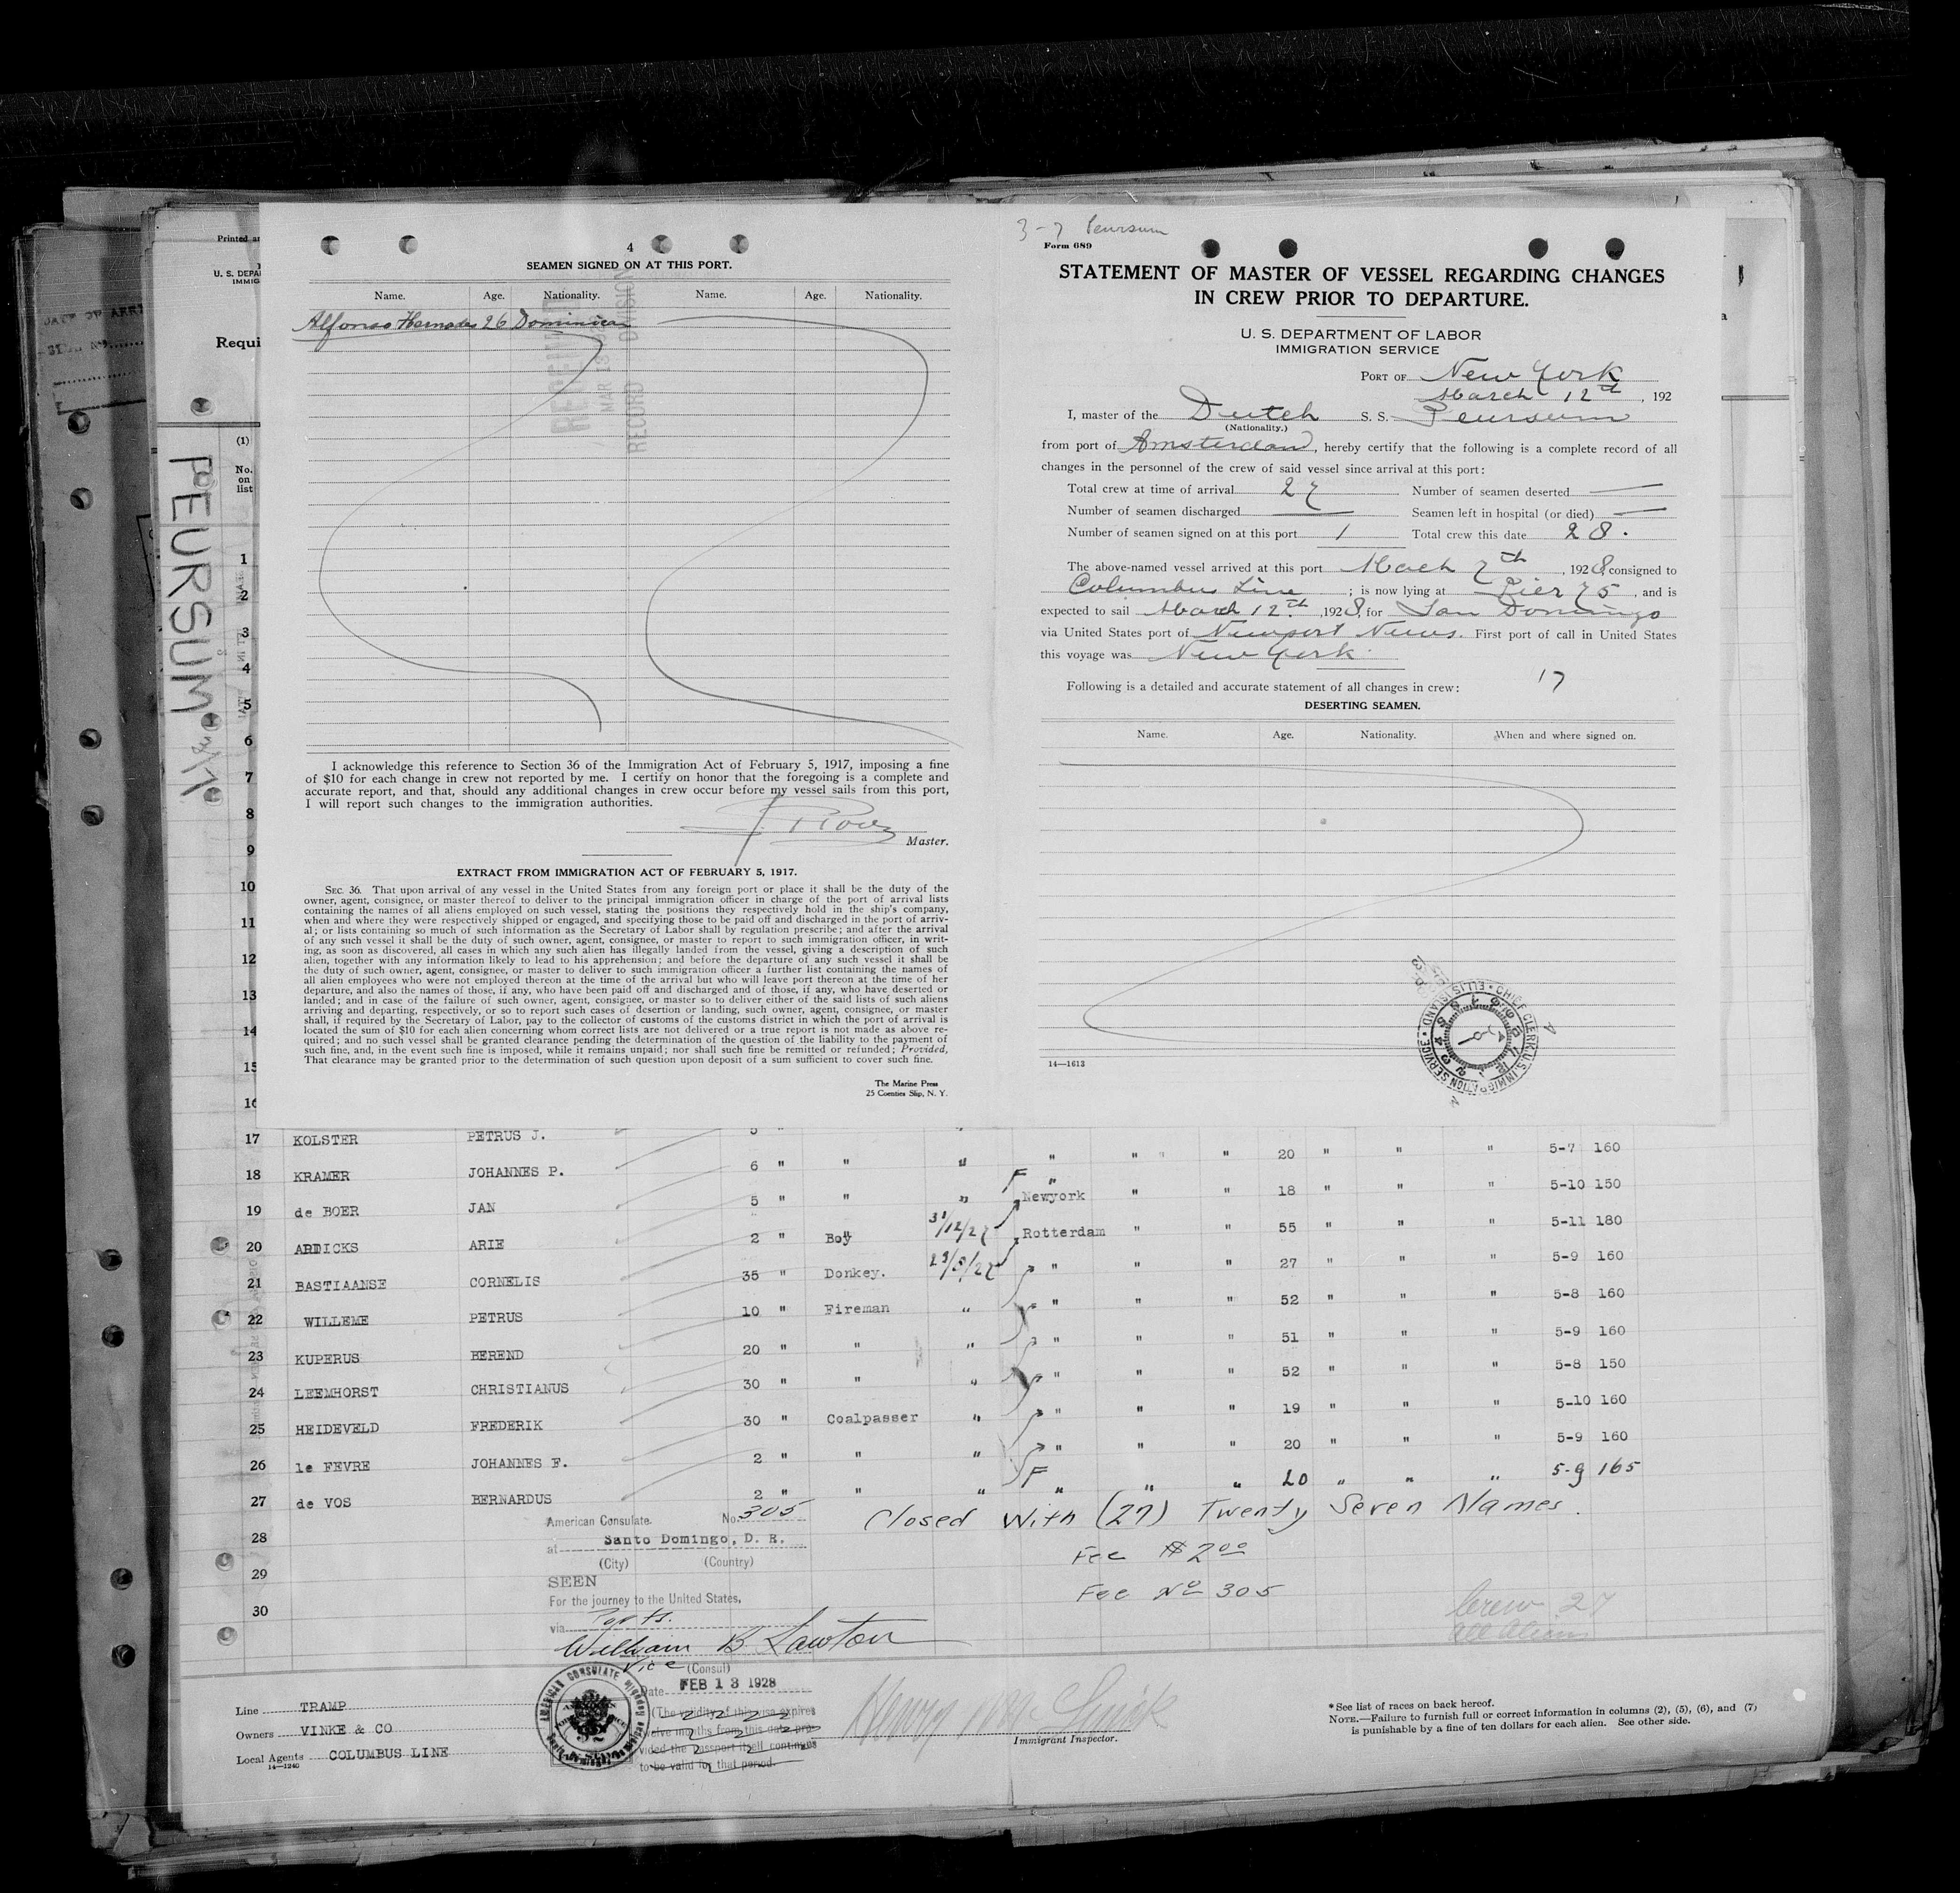 4
SEAMEN SIGNED ON AT THIS PORT.
Name. Age. Nationality. Name. Age. Nationality.
Alfonso Hernades 26 Dominican
RECEIVED
MAR 13 1928
RECORD DIVISION
I acknowledge this reference to Section 36 of the Immigration Act of February 5, 1917, imposing a fine
of $10 for each change in crew not reported by me. I certify on honor that the foregoing is a complete and
accurate report, and that, should any additional changes in crew occur before my vessel sails from this port,
I will report such changes to the immigration authorities.
Master.
EXTRACT FROM IMMIGRATION ACT OF FEBRUARY 5, 1917.
SEC. 36. That upon arrival of any vessel in the United States from any foreign port or place it shall be the duty of the
owner, agent, consignee, or master thereof to deliver to the principal immigration officer in charge of the port of arrival lists
containing the names of all aliens employed on such vessel, stating the positions they respectively hold in the ship's company,
when and where they were respectively shipped or engaged, and specifying those to be paid off and discharged in the port of arriv-
al; or lists containing so much of such information as the Secretary of Labor shall by regulation prescribe; and after the arrival
of any such vessel it shall be the duty of such owner, agent, consignee, or master to report to such immigration officer, in writ-
ing, as soon as discovered, all cases in which any such alien has illegally landed from the vessel, giving a description of such
alien, together with any information likely to lead to his apprehension; and before the departure of any such vessel it shall be
the duty of such owner, agent, consignee, or master to deliver to such immigration officer a further list containing the names of
all alien employees who were not employed thereon at the time of the arrival but who will leave port thereon at the time of her
departure, and also the names of those, if any, who have been paid off and discharged and of those, if any, who have deserted or
landed; and in case of the failure of such owner, agent, consignee, or master so to deliver either of the said lists of such aliens
arriving and departing, respectively, or so to report such cases of desertion or landing, such owner, agent, consignee, or master
shall, if required by the Secretary of Labor, pay to the collector of customs of the customs district in which the port of arrival is
located the sum of $10 for each alien concerning whom correct lists are not delivered or a true report is not made as above re-
quired; and no such vessel shall be granted clearance pending the determination of the question of the liability to the payment of
such fine, and, in the event such fine is imposed, while it remains unpaid; nor shall such fine be remitted or refunded; Provided,
That clearance may be granted prior to the determination of such question upon deposit of a sum sufficient to cover such fine.
The Marine Press
25 Coenties Slip, N. Y.
3-7 Peursum
Form 689
STATEMENT OF MASTER OF VESSEL REGARDING CHANGES
IN CREW PRIOR TO DEPARTURE.
U. S. DEPARTMENT OF LABOR
IMMIGRATION SERVICE
PORT OF New York
March 12th, 192
I, master of the Dutch S. S. Peursum
(Nationality.)
from port of Amsterdam, hereby certify that the following is a complete record of all
changes in the personnel of the crew of said vessel since arrival at this port:
Total crew at time of arrival 27 Number of seamen deserted —
Number of seamen discharged — Seamen left in hospital (or died) —
Number of seamen signed on at this port 1 Total crew this date 28.
The above-named vessel arrived at this port March 7th, 1928, consigned to
Columbus Line; is now lying at Pier 75, and is
expected to sail March 12th, 1928, for San Domingo
via United States port of Newport News. First port of call in United States
this voyage was New York.
Following is a detailed and accurate statement of all changes in crew: 17
DESERTING SEAMEN.
Name. Age. Nationality. When and where signed on.
14—1613
CHIEF CLERK U.S. IMMIGRATION SERVICE • ELLIS ISLAND •
Printed
U. S. DEPA
IMMIG
Requi
PEURSUM
(1)
No.
on
list
1
2
3
4
5
6
7
8
9
10
11
12
13
14
15
16
17 KOLSTER PETRUS J. 5 "
18 KRAMER JOHANNES P. 6 " " " " " " 20 " " " 5-7 160
19 de BOER JAN 5 " " " Newyork " " 18 " " " 5-10 150
20 ARDICKS ARIE 2 " Boy 31/12/27 Rotterdam " " 55 " " " 5-11 180
21 BASTIAANSE CORNELIS 35 " Donkey. " " " 27 " " " 5-9 160
22 WILLEME PETRUS 10 " Fireman " " " " 52 " " " 5-8 160
23 KUPERUS BEREND 20 " " " " " " 51 " " " 5-9 160
24 LEEMHORST CHRISTIANUS 30 " " " " " " 52 " " " 5-8 150
25 HEIDEVELD FREDERIK 30 " Coalpasser " " " " 19 " " " 5-10 160
26 le FEVRE JOHANNES F. 2 " " " " " " 20 " " " 5-9 160
27 de VOS BERNARDUS 2 " " " " " " 20 " " " 5-9 165
28
29
30
American Consulate. No. 305
at Santo Domingo, D. R.
(City) (Country)
SEEN
For the journey to the United States,
via Ports.
William B. Lawton
Vice (Consul)
Date FEB 13 1928
(The validity of this visa expires
twelve months from this date pro-
vided the passport itself continues
to be valid for that period.
AMERICAN CONSULATE
Closed With (27) Twenty Seven Names.
Fee $2.00
Fee No 305
Crew 27
all aliens
Line TRAMP
Owners VINKE & CO
Local Agents COLUMBUS LINE
14—1240
Immigrant Inspector.
* See list of races on back hereof.
NOTE.—Failure to furnish full or correct information in columns (2), (5), (6), and (7)
is punishable by a fine of ten dollars for each alien. See other side.